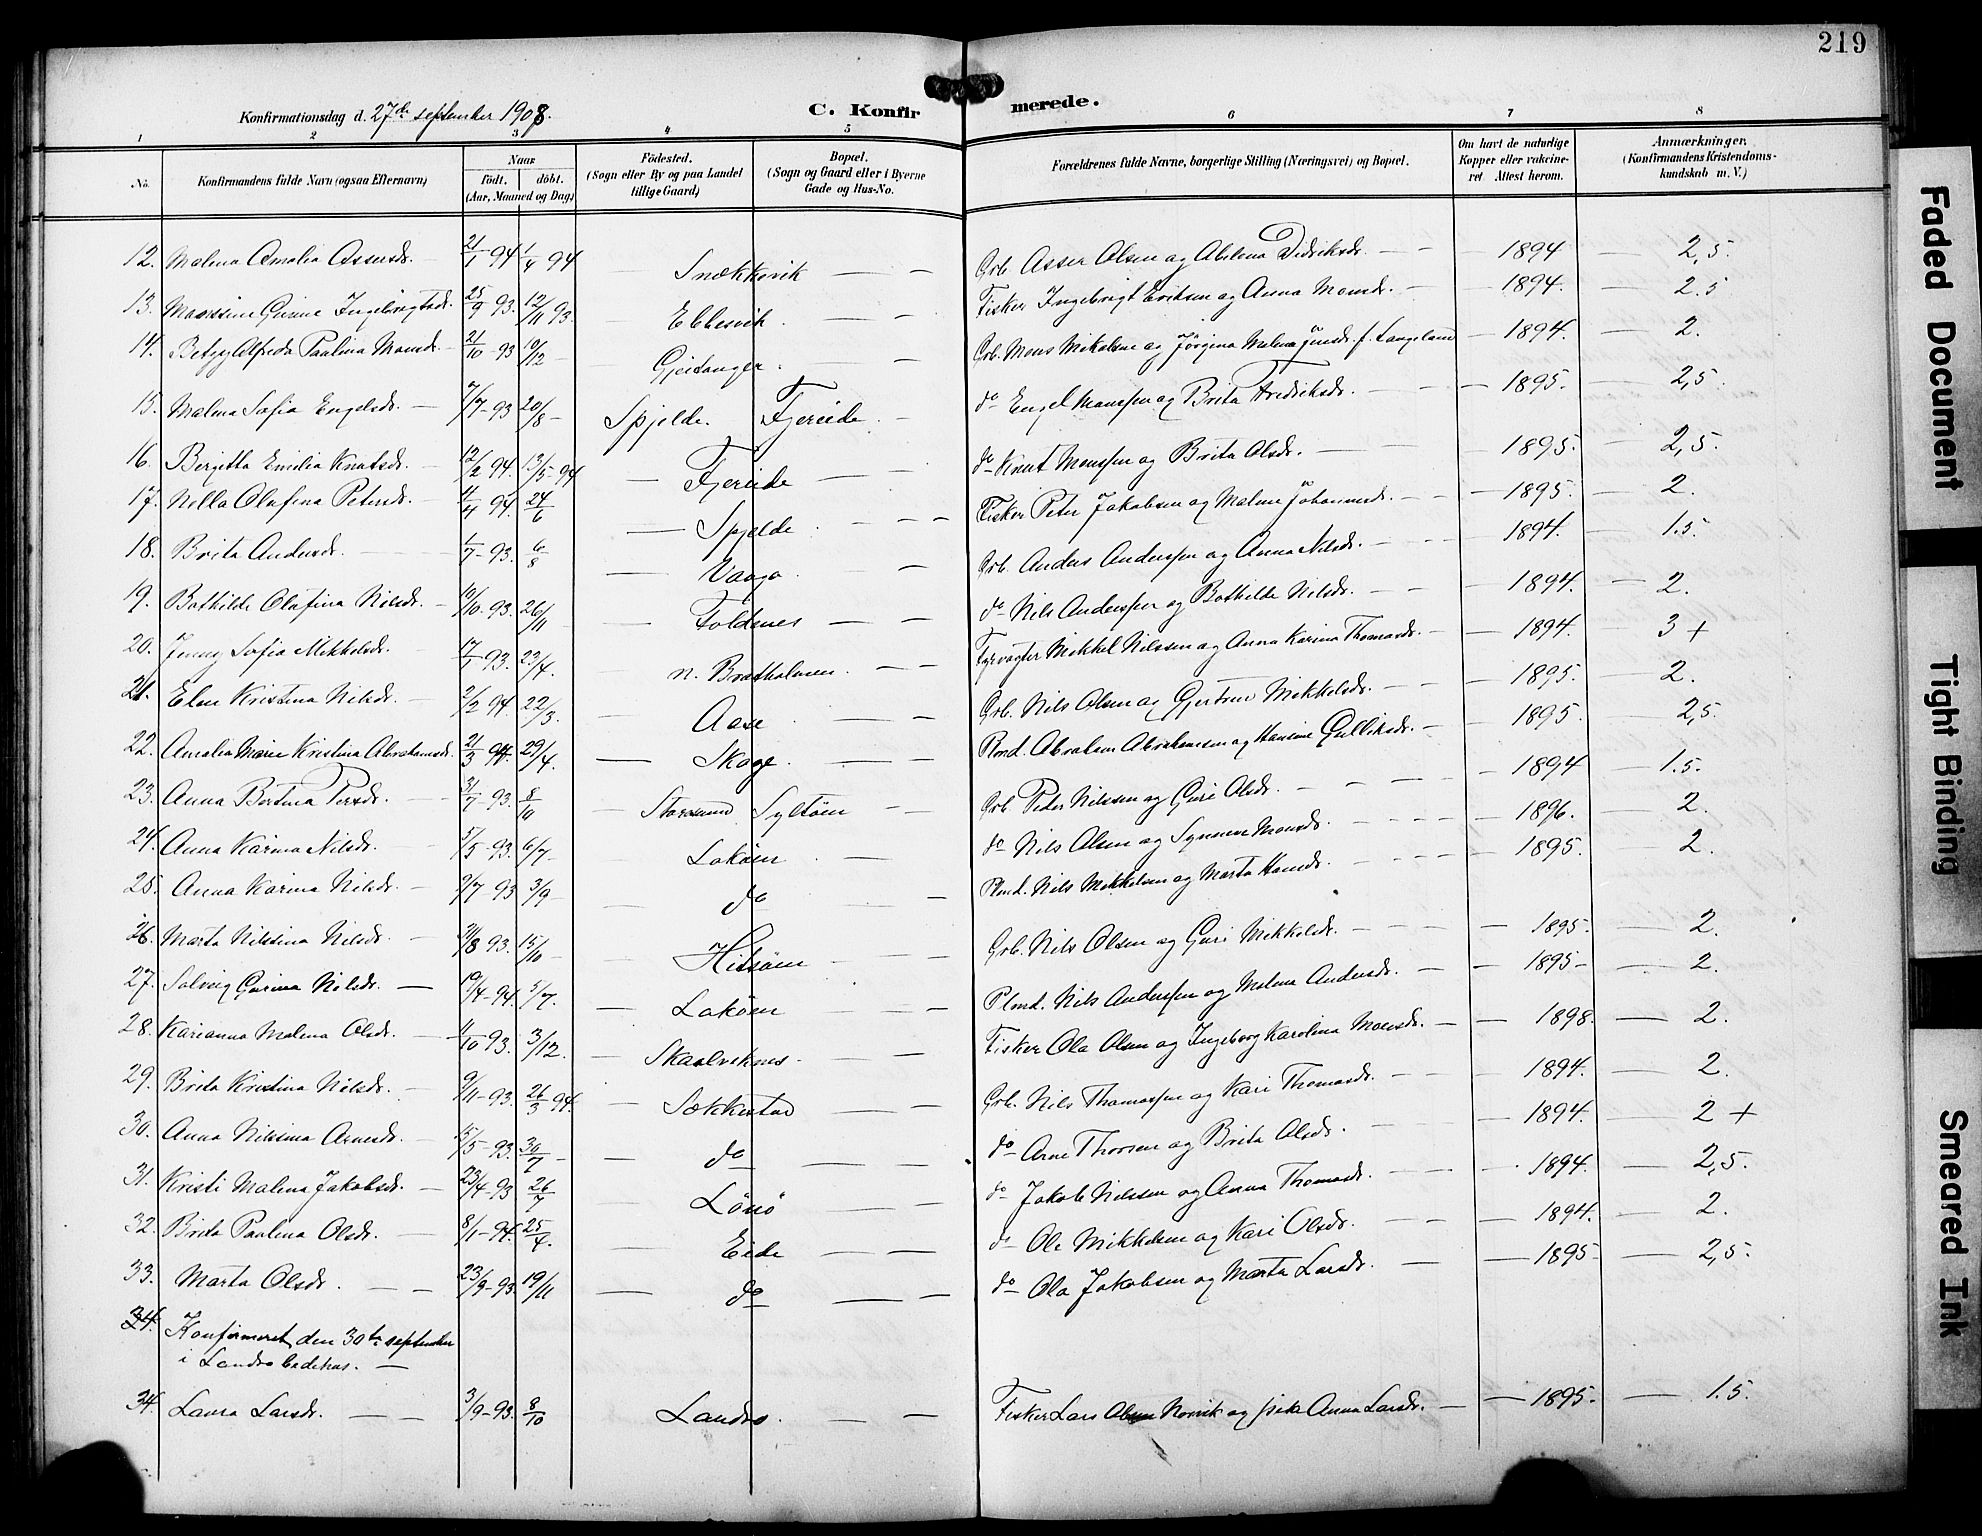 219
Konfirmationsdag d. 27de september 1908.
C. Konfirmerede.
1 2 3 4 5 6 7 8
No. Konfirmandens fulde Navn (ogsaa Efternavn) Naar født. døbt. (Aar, Maaned og Dag) Fødested. (Sogn eller By og paa Landet tillige Gaard) Bopæl. (Sogn og Gaard eller i Byerne Gade og Hus-No. Forældrenes fulde Navne, borgerlige Stilling (Næringsvei) og Bopæl. Om havt de naturlige Kopper eller vaccineret Attest herom. Anmærkninger. (Konfirmandens Kristendomskundskab m. V.)
12. Malena Amalia Assersdr. 21/1 94 1/4 94 Snekkevik Grb. Asser Olsen og Abelena Didriksdr. 1894 2,5.
13. Gurine Ingebrigtsdr. 25/9 93. 12/11 93. Ebbesvik Fisker Ingebrigt Eriksen og Anna Monsdr. 1894. 2.5
14. Betzy Alfreda Paulina Monsd. 21/10 93 10/12 Gjeitanger Grb. Mons Mikalsen og Jørgina Malena Jensdr. f. Langeland 1894. 2.
15. Malena Sofia Engelsdr. 7/7 93 20/8 Spjelde. Fjereide do Engel Monssen og Brita Fredriksdr. 1895. 2,5.
16. Bergitta Emilia Knutsdr. 12/2 94. 13/5 94 Fjereide do Knut Monssen og Brita Olsdr. 1895. 2,5.
17. Nella Olufina Petersdr. 11/4 94. 24/6 Spjelde Fisker Peter Jakobsen og Malene Johannesdr. 1895. 2.
18. Brita Andersdr. 1/7 93. 6/8 Vaage Grb. Anders Anderssen og Anna Nilsdr. 1894. 1.5.
19. Bothilde Olufina Nilsdr. 10/10 93. 26/11 Foldnes do Nils Anderssen og Bothilde Nilsdr. 1894. 2.
20. Jenny Sofia Mikkelsdr. 17/1 93. 23/4. n. Bratholmen Fyrvogter Mikkel Nilssen og Anna Karina Thomasdr. 1894. 3 +
21. Elen Kristina Nilsdr. 2/2 94. 22/3. Aase Grb. Nils Olsen og Gjertrue Mikkelsdr. 1895. 2.
22. Amalia Marie Kristina Abrahamsdr. 21/3 94. 29/4. Skoge Plmd. Abraham Abrahamsen og Hansine Gulliksdr. 1895. 2,5.
23. Anna Bertina Persdr. 31/7 93. 8/10 Storesund Syltøen Grb. Peder Nilssen og Guri Olsdr. 1894 1.5.
24. Anna Karina Nilsdr. 5/5 93. 6/7 Lokøen do Nils Olsen og Synneve Monsdr. 1896. 2.
25. Anna Karina Nilsdr. 2/7 93 3/9 do Plmd. Nils Mikkelsen og Marta Hansdr. 1895. 2.
26. Marta Nilsina Nilsdr. 31/8 93. 15/10 Hitsøen Grb. Nils Olsen og Guri Mikkelsdr. 1895. 2.
27. Solveig Gurina Nilsdr. 19/4 94. 5/7. Lokøen Plmd. Nils Anderssen og Malena Andersdr. 1895 2.
28. Karianna Malena Olsdr. 11/10 93. 3/12. Skaalviknes Fisker Ola Olsen og Ingeborg Karolina Monsdr. 1898. 2.
29. Brita Kristina Nilsdr. 9/11 93. 26/3 94. Sekkestad Grb. Nils Thomassen og Kari Thomasdr. 1894. 2.
30. Anna Nilsina Arnesdr. 15/5 93. 30/7 do do Arne Thorsen og Brita Olsdr. 1894. 2 +
31. Kristi Malena Jakobsdr. 23/4 93 26/7 Lønø do Jakob Nilssen og Anna Thomasdr. 1894. 2,5.
32. Brita Paulina Olsdr. 8/1 94. 25/4. Eide do Ole Mikkelsen og Kari Olsdr. 1894. 2.
33. Marta Olsdr. 23/9 93. 19/11 do do Ola Jakobsen og Marta Larsdr. 1895 2,5.
34. Konfirmeret den 30te september
i Landro bedehus.
34. Laura Larsdr. 3/9 93. 8/10 Landro Fisker Lars Olsen og Anna Larsdr. 1895. 1.5.
Faded Document
Tight Binding
Smeared Ink